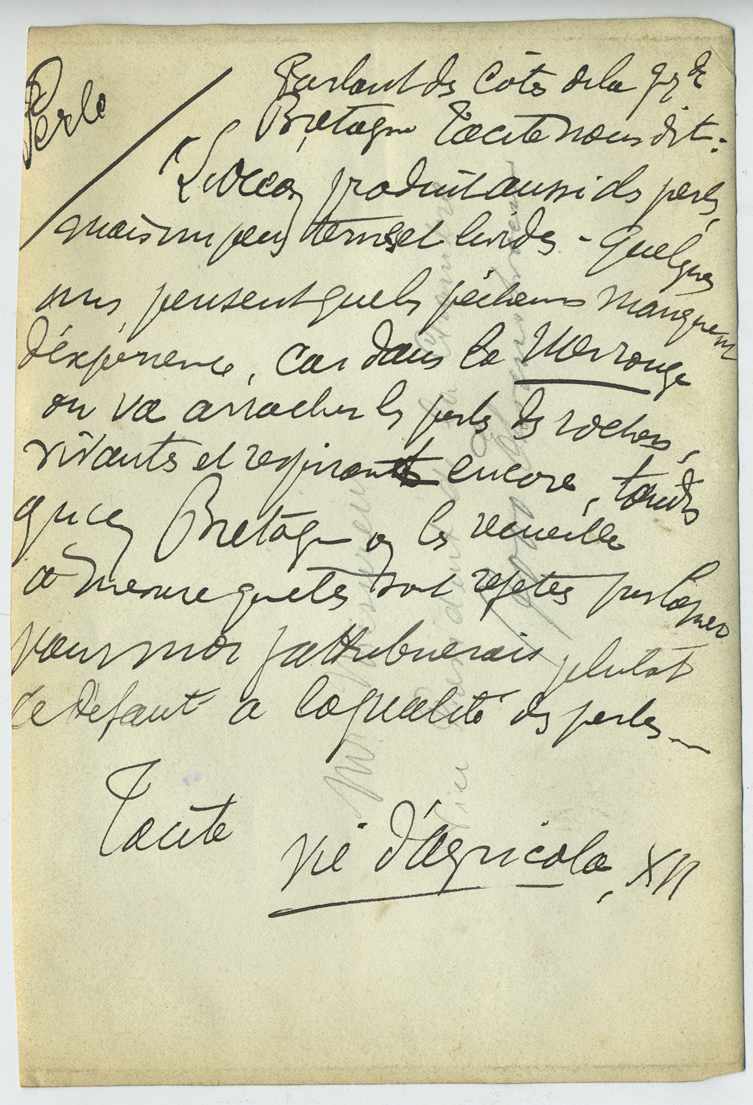 Perle
Parlant des Côtes de la Gde
Bretagne Tacite nous dit :
"L'Océan produit aussi des perles,
mais un peu ternes et livides - Quelques
uns pensent que les pêcheurs manquent
d'expérience, car dans la Mer rouge
on va arracher les perles des rochers,
vivantes et respirantes encore, tandis
qu'en Bretagne on les recueille
à mesure qu'elles sont rejetées
pour moi j'attribuerais plutôt
ce défaut à la qualité des perles _
Tacite
Vie d'Agricola, XII